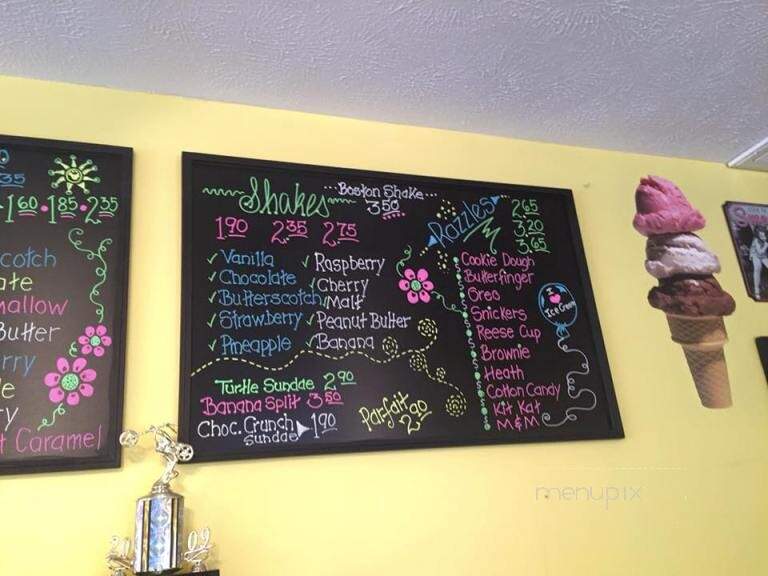 35
1.60 • 1.85 • 2.35
scotch
ate
mallow
Butter
rry
e
ry
t Caramel
Shakes
Boston Shake
3.50
1.90 2.35 2.75
✓ Vanilla
✓ Chocolate
✓ Butterscotch
✓ Strawberry
✓ Pineapple
✓ Raspberry
✓ Cherry
✓ Malt
✓ Peanut Butter
✓ Banana
Turtle Sundae 2.90
Banana Split 3.50
Choc. Crunch Sundae 1.90
Parfait
2.90
Razzles
2.65
3.20
3.65
Cookie Dough
Butterfinger
Oreo
Snickers
Reese Cup
Brownie
Heath
Cotton Candy
Kit Kat
M&M
I ♥
Ice Cream
20 09
menupix